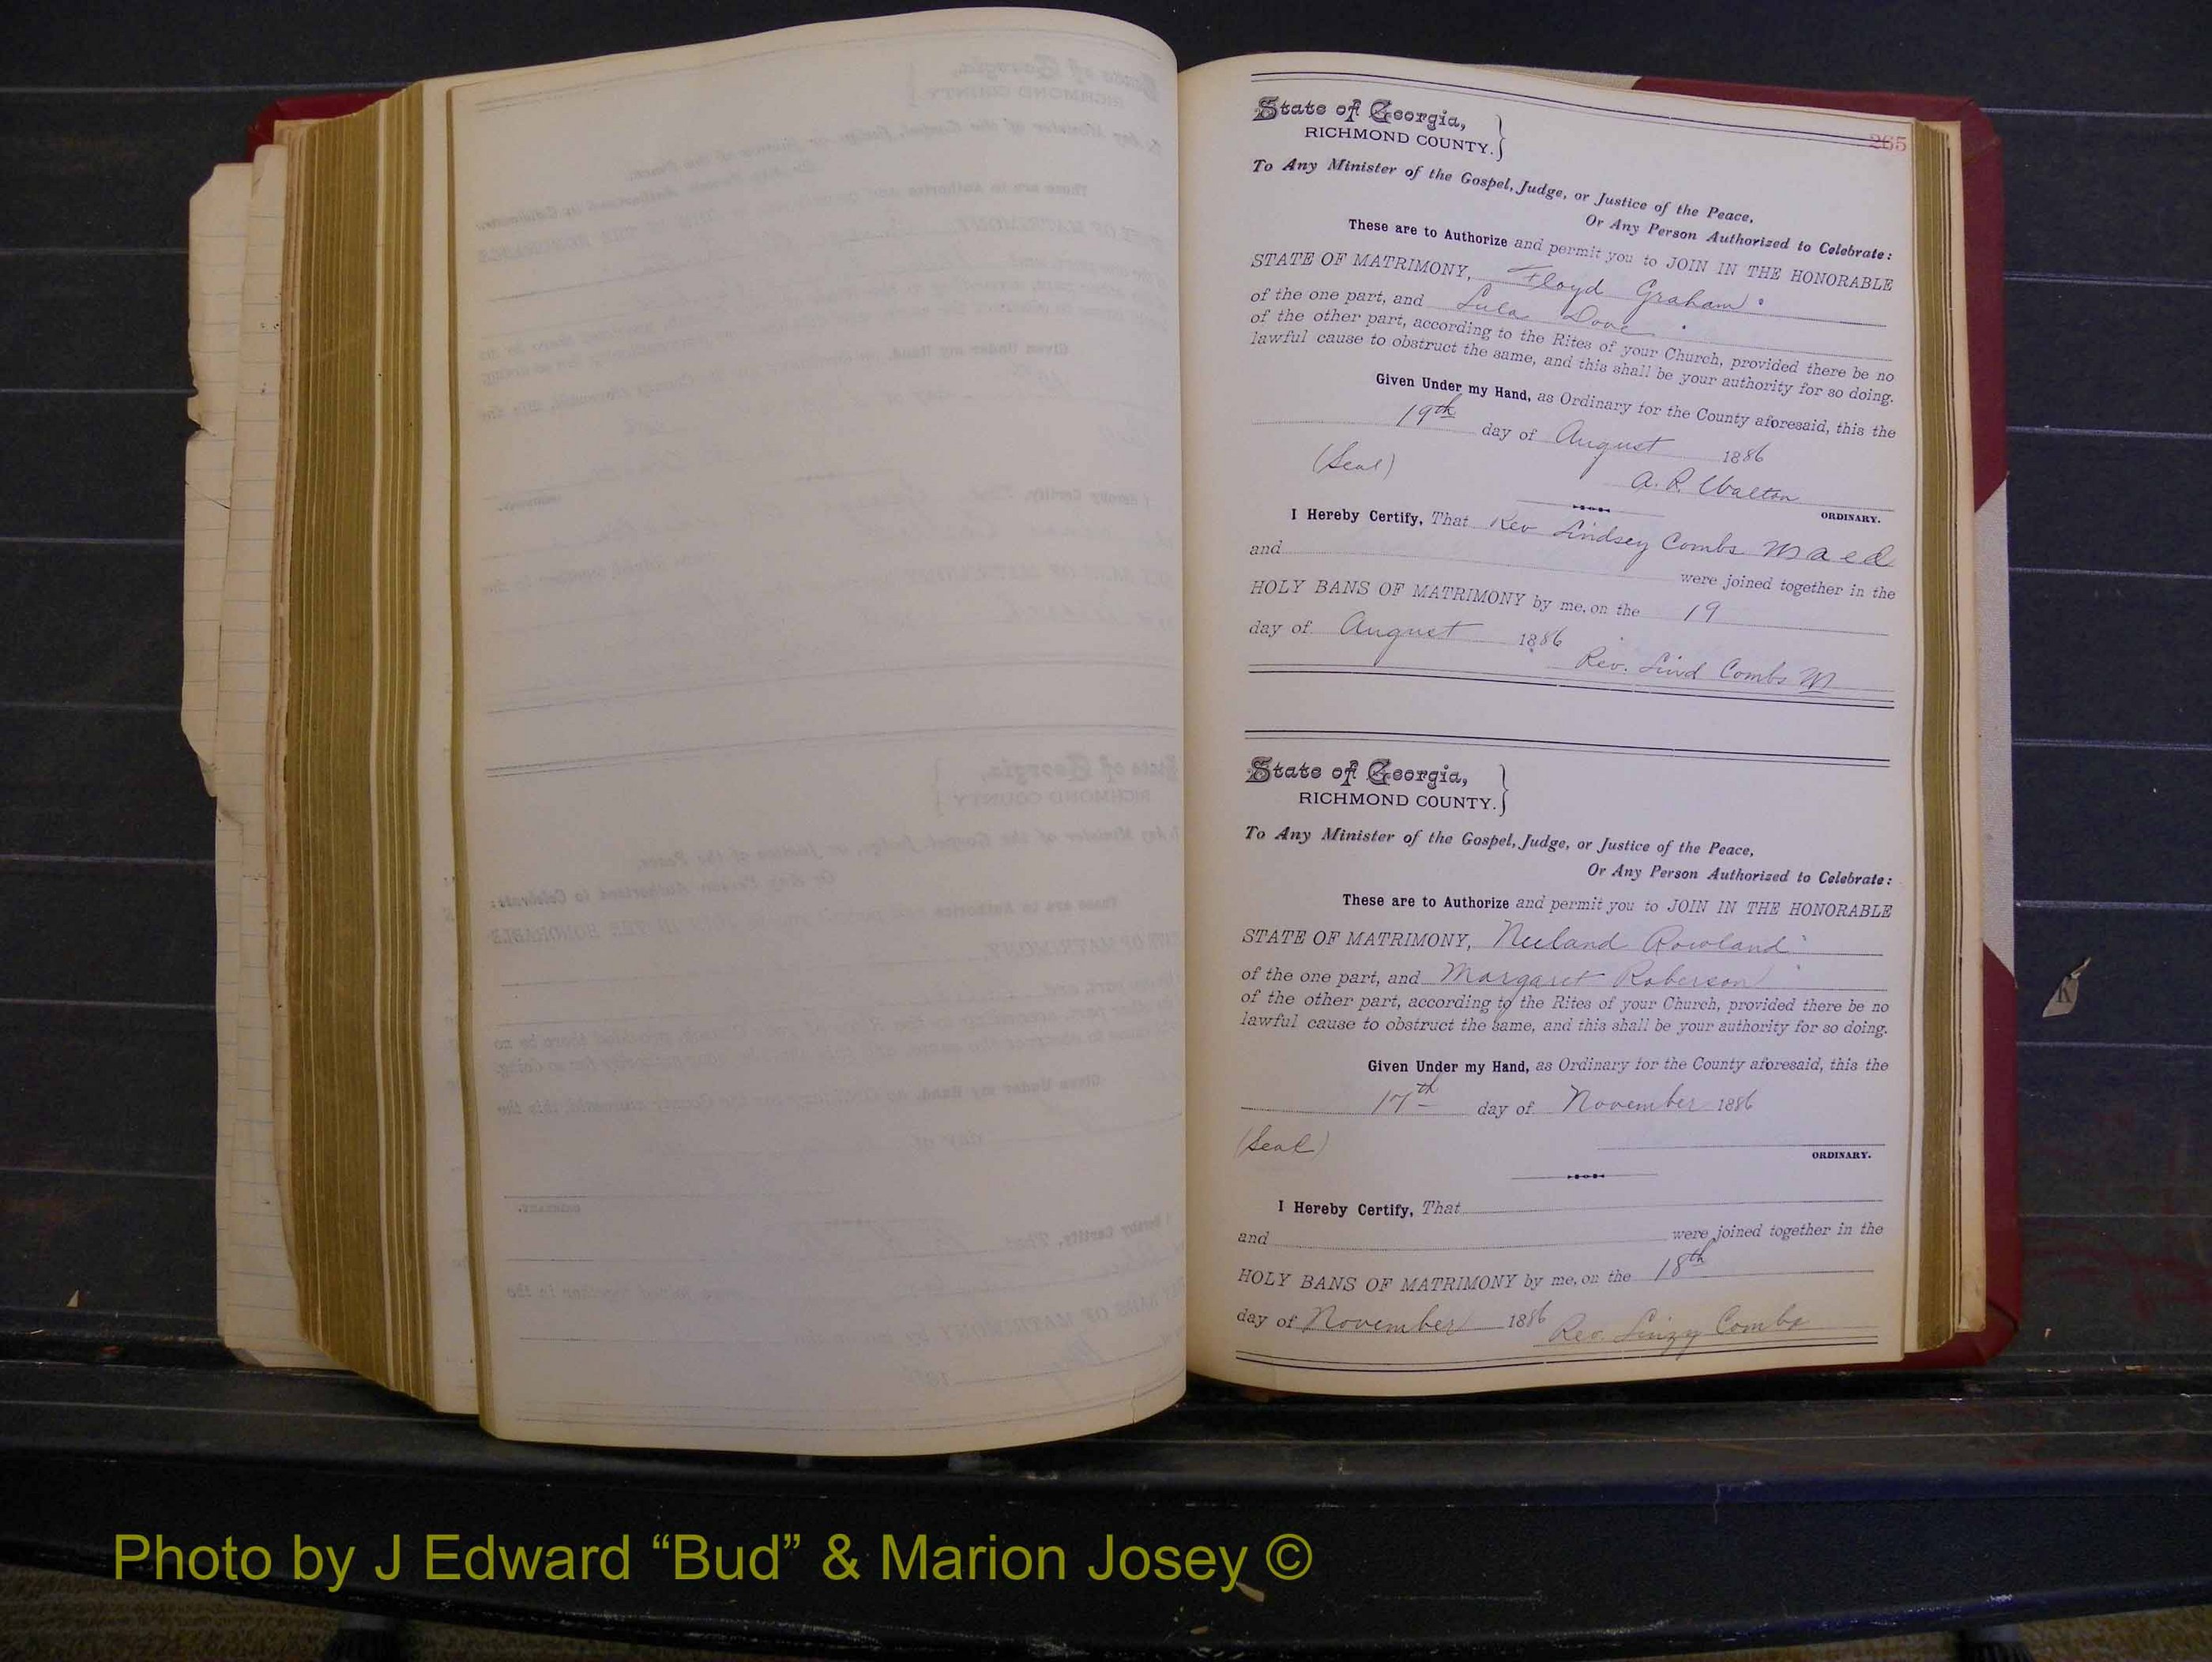 265
State of Georgia,
RICHMOND COUNTY.}
To Any Minister of the Gospel, Judge, or Justice of the Peace,
Or Any Person Authorized to Celebrate:
These are to Authorize and permit you to JOIN IN THE HONORABLE
STATE OF MATRIMONY, Floyd Graham
of the one part, and Lula Dove
of the other part, according to the Rites of your Church, provided there be no
lawful cause to obstruct the same, and this shall be your authority for so doing.
Given Under my Hand, as Ordinary for the County aforesaid, this the
19th day of August 1886
(Seal)
A. R. Walton
ORDINARY.
I Hereby Certify, That Rev Lindsey Combs M a e d
and were joined together in the
HOLY BANS OF MATRIMONY by me, on the 19
day of August 1886
Rev. Lind Combs M
State of Georgia,
RICHMOND COUNTY.}
To Any Minister of the Gospel, Judge, or Justice of the Peace,
Or Any Person Authorized to Celebrate:
These are to Authorize and permit you to JOIN IN THE HONORABLE
STATE OF MATRIMONY, Rowland
of the one part, and Margaret Roberson
of the other part, according to the Rites of your Church, provided there be no
lawful cause to obstruct the same, and this shall be your authority for so doing.
Given Under my Hand, as Ordinary for the County aforesaid, this the
17th day of November 1886
(Seal)
ORDINARY.
I Hereby Certify, That
and were joined together in the
HOLY BANS OF MATRIMONY by me, on the 18th
day of November 1886 Rev. Linzy Combs
K
Photo by J Edward “Bud” & Marion Josey ©